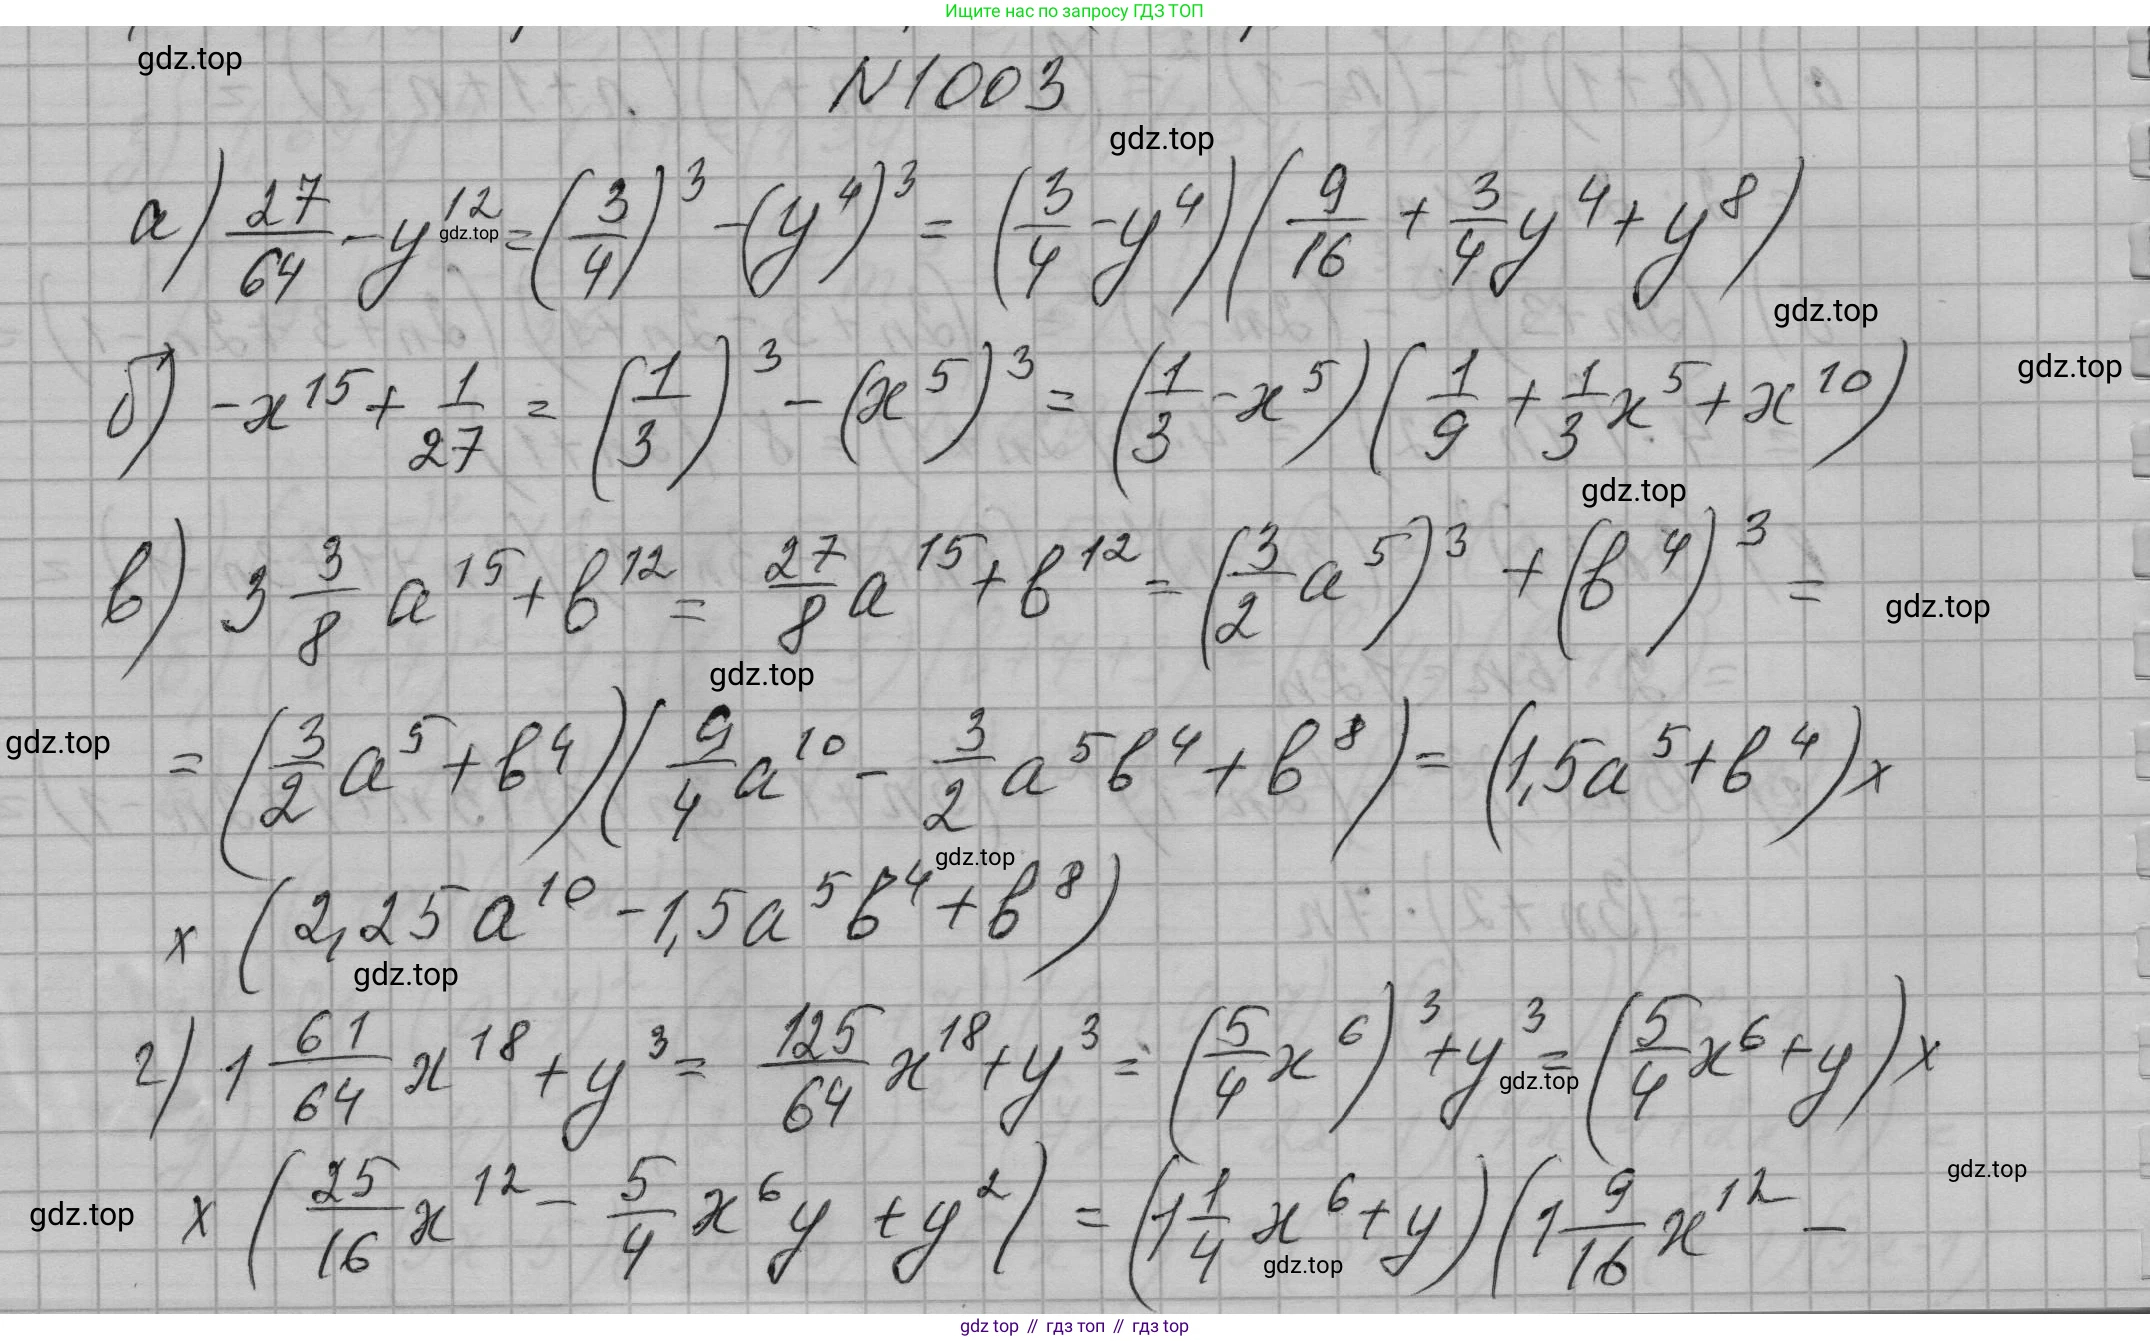 Ищите нас по запросу ГДЗ ТОП
gdz.top
N1003
gdz.top
а) 27/64 - y^12 = (3/4)^3 - (y^4)^3 = (3/4 - y^4)(9/16 + 3/4 y^4 + y^8)
gdz.top
gdz.top
gdz.top
б) -x^15 + 1/27 = (1/3)^3 - (x^5)^3 = (1/3 - x^5)(1/9 + 1/3 x^5 + x^10)
gdz.top
в) 3 3/8 a^15 + b^12 = 27/8 a^15 + b^12 = (3/2 a^5)^3 + (b^4)^3 =
gdz.top
gdz.top
gdz.top
= (3/2 a^5 + b^4)(9/4 a^10 - 3/2 a^5 b^4 + b^8) = (1,5a^5 + b^4) x
gdz.top
x (2,25a^10 - 1,5a^5 b^4 + b^8)
gdz.top
г) 1 61/64 x^18 + y^3 = 125/64 x^18 + y^3 = (5/4 x^6)^3 + y^3 = (5/4 x^6 + y) x
gdz.top
gdz.top
gdz.top
x (25/16 x^12 - 5/4 x^6 y + y^2) = (1 1/4 x^6 + y)(1 9/16 x^12 -
gdz.top
gdz top // гдз топ // гдз top